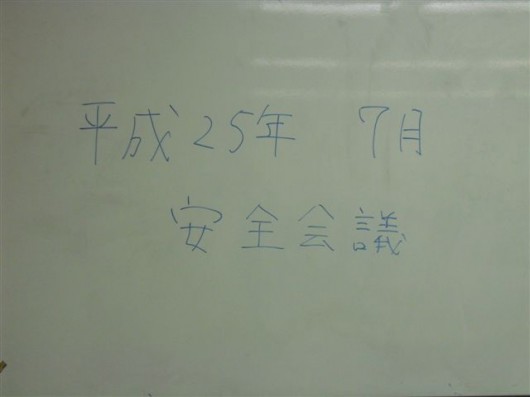 平成25年 7月
安全会議